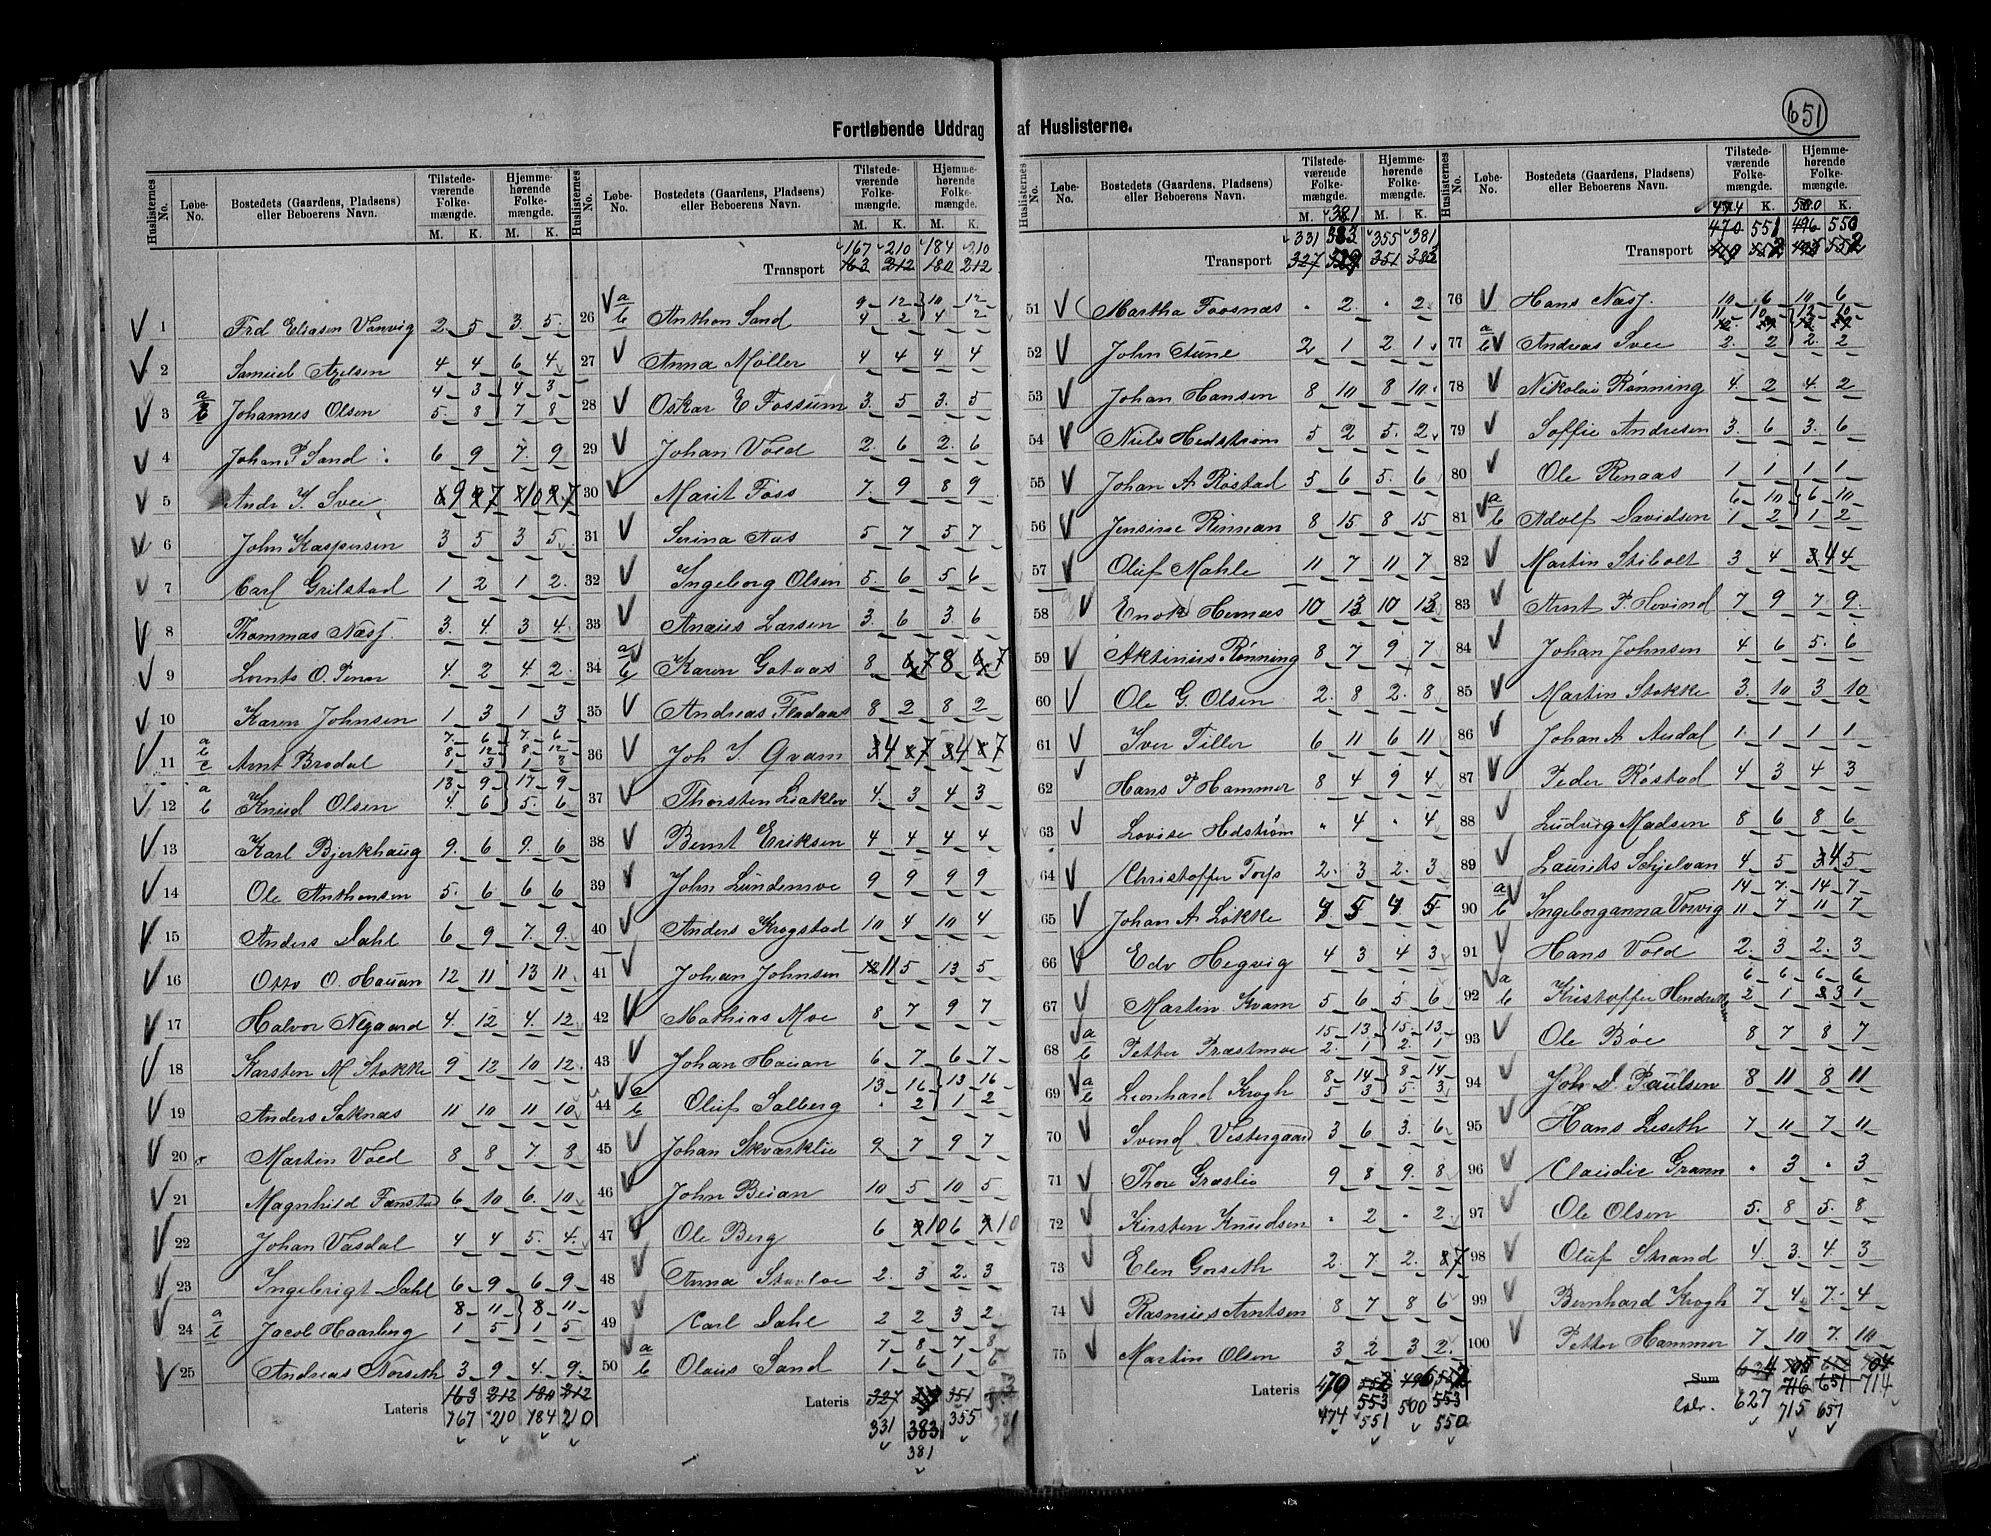 651
Fortløbende Uddrag af Huslisterne.
Huslisternes No. Løbe-No. Bostedets (Gaardens, Pladsens) eller Beboerens Navn. Tilstedeværende Folkemængde. Hjemmehørende Folkemængde.
M. K. M. K.
1 Frd Eliasen Vanvig 2 5 3 5
2 Samuel Axelsen 4 4 6 4
3 a 4 3 4 3
b Johannes Olsen 5 8 7 8
4 Johan P Sand 6 9 7 9
5 Andr. J. Svee 9 7 10 7
6 John Kaspersen 3 5 3 5
7 Carl Grilstad 1 2 1 2
8 Thommas Næsf. 3 4 3 4
9 Lornts O. 4 2 4 2
10 Karen Johnsen 1 3 1 3
11 a 7 6 7 6
b 8 12 8 12
c Arnt Brodal 1 3 1 3
12 a 13 9 17 9
b Knud Olsen 4 6 5 6
13 Karl Bjerkhaug 9 6 9 6
14 Ole Anthonsen 5 6 6 6
15 Anders Dahl 6 9 7 9
16 Otto O. Hauan 12 11 13 11
17 Halvor Negaard 4 12 4 12
18 Karsten M Stokke 9 12 10 12
19 Anders Saknæs 11 10 11 10
20 Martin Vold 8 8 7 8
21 Magnhild Fanstad 6 10 6 10
22 Johan Vasdal 4 4 5 4
23 Ingebrigt Dahl 6 9 6 9
24 a 8 11 8 11
b Jacob Haarberg 1 5 1 5
25 Andreas Norseth 3 9 4 9
Lateris 163 212 180 212
167 210 184 210
Huslisternes No. Løbe-No. Bostedets (Gaardens, Pladsens) eller Beboerens Navn. Tilstedeværende Folkemængde. Hjemmehørende Folkemængde.
M. K. M. K.
167 210 184 210
Transport 163 212 180 212
26 a 9 12 10 12
b Anthon Sand 4 2 4 2
27 Anna Møller 4 4 4 4
28 Oskar E Fossum 3 5 3 5
29 Johan Vold 2 6 2 6
30 Marit Foss 7 9 8 9
31 Serina Aas 5 7 5 7
32 Ingeborg Olsen 5 6 5 6
33 Anæus Larsen 3 6 3 6
34 a
b Karen Gataas 8 7 8 7
35 Andreas Fladaas 8 2 8 2
36 Joh S. Qvam 4 7 4 7
37 Thorsten 4 3 4 3
38 Bernt Eriksen 4 4 4 4
39 John Lundemoe 9 9 9 9
40 Anders Krogstad 10 4 10 4
41 Johan Johnsen 12 11 5 13 5
42 Mathias Moe 8 7 9 7
43 Johan Hauan 6 7 6 7
44 a 13 16 13 16
b Oluf Salberg " 2 1 2
45 Johan Skvarklie 9 7 9 7
46 John Beian 10 5 10 5
47 Ole Berg 6 10 6 10
48 Anna 2 3 2 3
49 Carl Dahl 2 2 3 2
50 a 7 8 7 8
b Olaus Sand 1 6 1 6
Lateris 327 351
331 383 355 381
381
Huslisternes No. Løbe-No. Bostedets (Gaardens, Pladsens) eller Beboerens Navn. Tilstedeværende Folkemængde. Hjemmehørende Folkemængde.
M. 381 M. K.
331 383 355 381
Transport 327 351 383
51 Martha Foosnæs " 2 " 2
52 John Tune 2 1 2 1
53 Johan Hansen 8 10 8 10
54 Niels Hedstrøm 5 2 5 2
55 Johan A Røstad 5 6 5 6
56 Jensine Rinnan 8 15 8 15
57 Oluf Mahle 11 7 11 7
58 Enok Hernæs 10 10
59 Aktinius Rønning 8 7 9 7
60 Ole G. Olsen 2 8 2 8
61 Iver Tiller 6 11 6 11
62 Hans P Hammer 8 4 9 4
63 Lovise Hedstrøm " 4 " 4
64 Christoffer Torp 2 3 2 3
65 Johan A Løkke 7 5 7 5
66 Edv Hegvig 4 3 4 3
67 Martin Kvam 5 6 5 6
68 a 15 13 15 13
b Petter Præstmoe 2 1 2 1
69 a 8 14 8 14
b Leonhard Krogh 5 3 5 3
70 Svend Vestergaard 3 6 3 6
71 Thore Græslie 9 8 9 8
72 Kirsten Knudsen " 2 " 2
73 Elen Gorseth 2 7 2 7
74 Rasmus Arntsen 8 7 8 6
75 Martin Olsen 3 2 3 2
Lateris 470 552 496 552
553 553
474 551 500 550
Huslisternes No. Løbe-No. Bostedets (Gaardens, Pladsens) eller Beboerens Navn. Tilstedeværende Folkemængde. Hjemmehørende Folkemængde.
474 K. 500 K.
470 551 496 550
Transport 552 552
76 Hans Næsf. 10 6 10 6
77 a 11 10 12 10
b Andreas Svee 2 2 2 2
78 Nikolai Rønning 4 2 4 2
79 Soffie Andresen 3 6 3 6
80 Ole Renaas 1 1 1 1
81 a 6 10 6 10
b Adolf Davidsen 1 2 1 2
82 Martin Stibolt 3 4 3 4 4
83 Arnt P. Hovind 7 9 7 9
84 Johan Johnsen 4 6 5 6
85 Martin Stokke 3 10 3 10
86 Johan A Ausdal 1 1 1 1
87 Peder Røstad 4 3 4 3
88 Ludvig Madsen 8 6 8 6
89 Laurits Schjelvan 4 5 3 4 5
90 a 14 7 14 7
b Ingeborganna Vorvig 11 7 11 7
91 Hans Vold 2 3 2 3
92 a 6 6 6 6
b Kristoffer Hendriksen 2 1 2 3 1
93 Ole Bøe 8 7 8 7
94 Joh D. Paulsen 8 11 8 11
95 Hans Leseth 7 11 7 11
96 Claudie Grann " 3 " 3
97 Ole Olsen 5 8 5 8
98 Oluf Strand 4 3 4 3
99 Bernhard Krogh 7 4 7 4
100 Petter Hammer 7 10 7 10
Sum 704
716 651 714
627 715 657